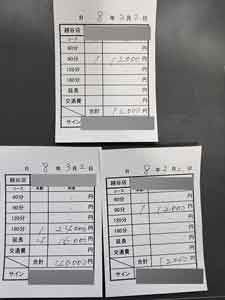 月 8 年 2月 2日
越谷店
コース
60分 円
90分 1 12,000 円
120分 円
180分 円
延長 円
交通費 円
合計 12,000 円
サイン
月 8 年 3月 2日
越谷店
コース 本数 料金
60分 円
90分 円
120分 円
180分 1 24,000 円
延長 16,000 円
交通費 円
合計 40,000 円
サイン
月 8 年 2月 2日
越谷店
コース 本数 料金
60分 円
90分 1 12,000 円
120分 円
180分 円
延長 円
交通費 円
合計 12,000 円
サイン